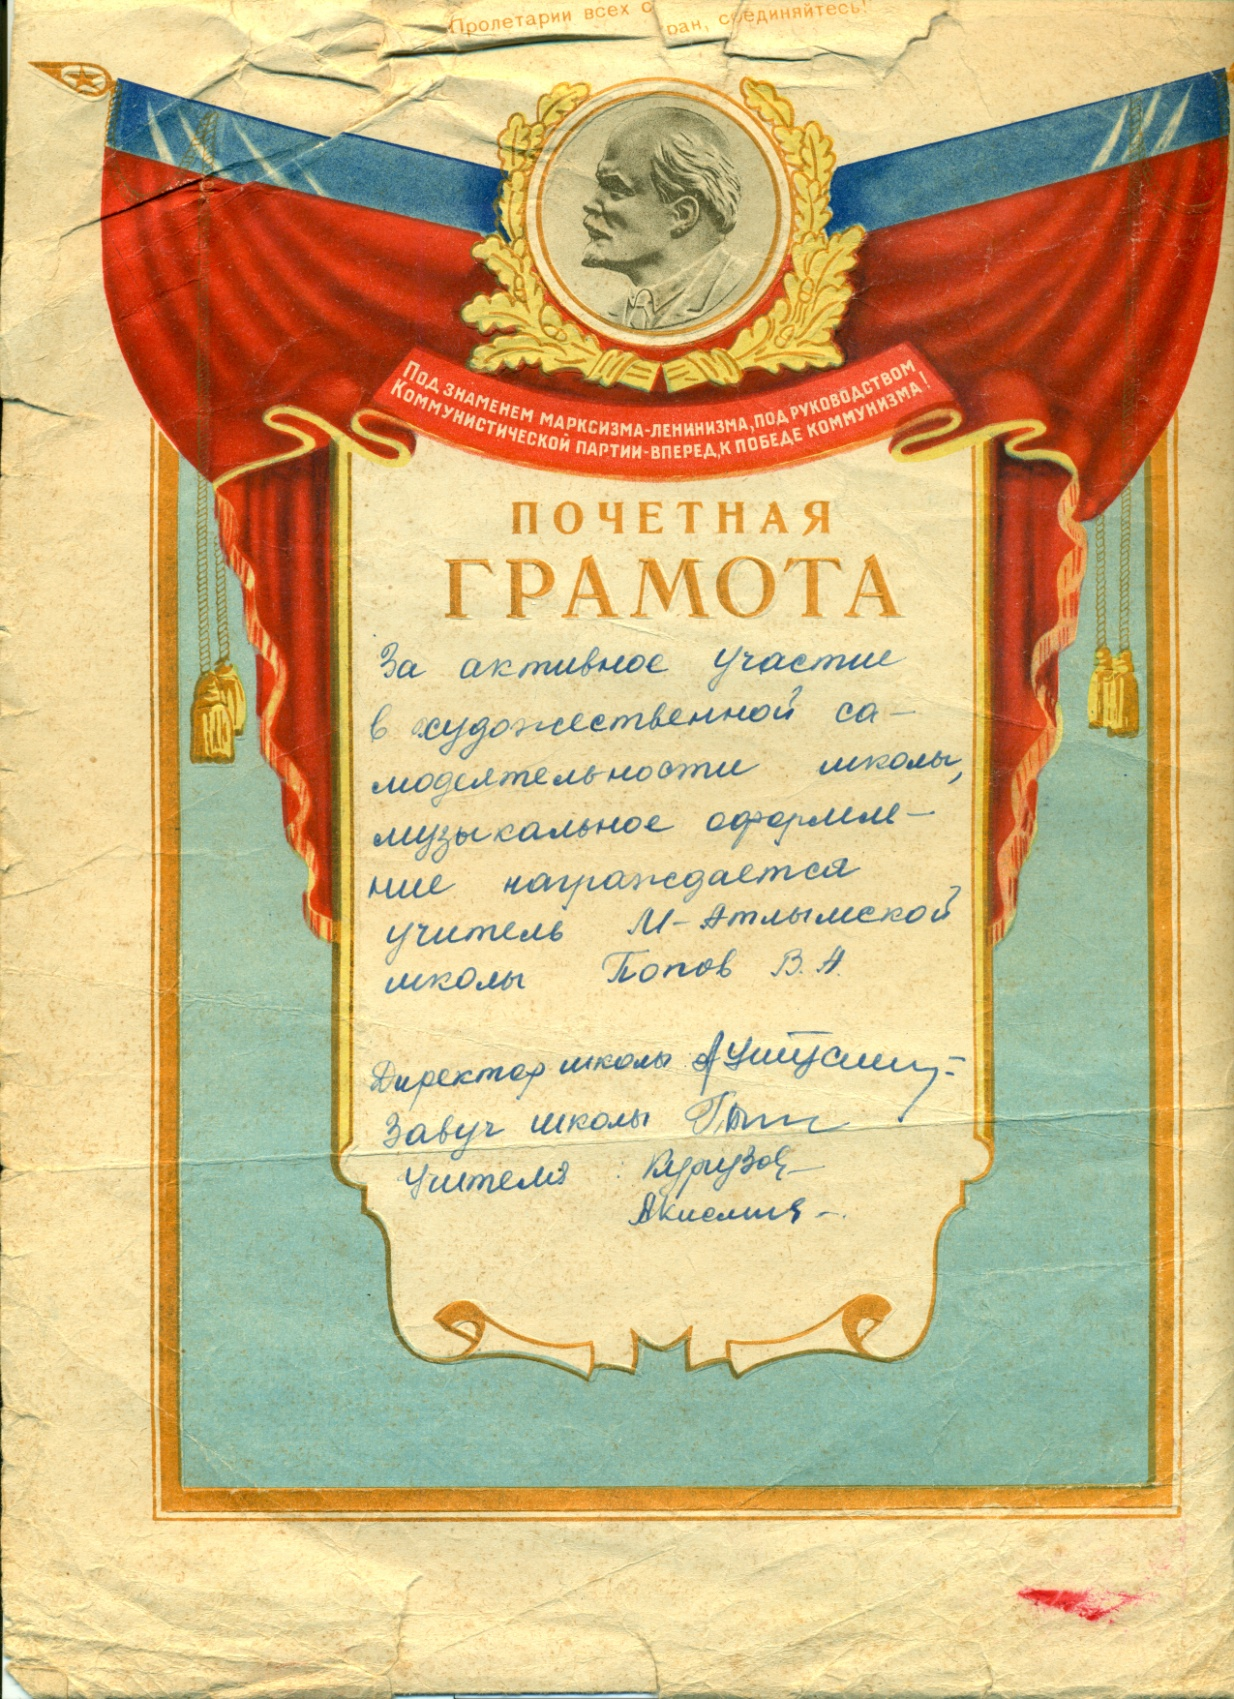 Пролетарии всех стран, соединяйтесь!
Под знаменем марксизма-ленинизма, под руководством
Коммунистической партии-вперед, к победе коммунизма!
ПОЧЕТНАЯ
ГРАМОТА
За активное участие
в художественной са-
модеятельности школы,
музыкальное оформле-
ние награждается
учитель М-Атлымской
школы Попов В.А.
Директор школы
Завуч школы
Учителя